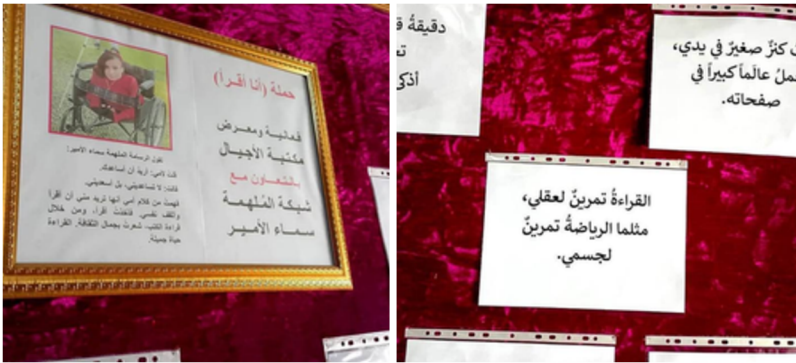 حملة (أنا أقرأ)
فعالية ومعرض
مكتبة الأجيال
بالتعاون مع
شبكة المُلهمة
سماء الأمير
تقول الرسامة الملهمة سماء الأمير:
قلت لأمي: أريد أن أساعدك.
قالت: لا تساعديني، بل أسعديني.
فهمت من كلام أمي أنها تريد مني أن أقرأ
وأثقف نفسي. فأخذت أقرأ، ومن خلال
قراءة الكتب، شعرت بجمال الثقافة. القراءة
حياة جميلة.
دقيقةُ
أذكى
كنزٌ صغيرٌ في يدي،
عالَماً كبيراً في
صفحاته.
القراءةُ تمرينٌ لعقلي،
مثلما الرياضةُ تمرينٌ
لجسمي.